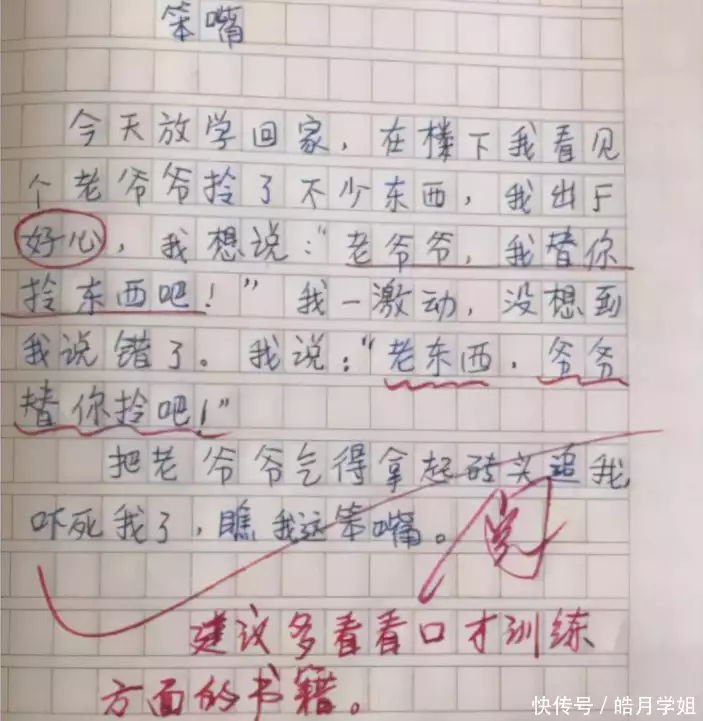 笨嘴
今天放学回家，在楼下我看见
个老爷爷拎了不少东西，我出于
好心，我想说：“老爷爷，我替你
拎东西吧！”我一激动，没想到
我说错了。我说：“老东西，爷爷
替你拎吧！”
把老爷爷气得拿起砖头追我
吓死我了，瞧我这笨嘴。
建议多看看口才训练
方面的书籍。
快传号／皓月学姐